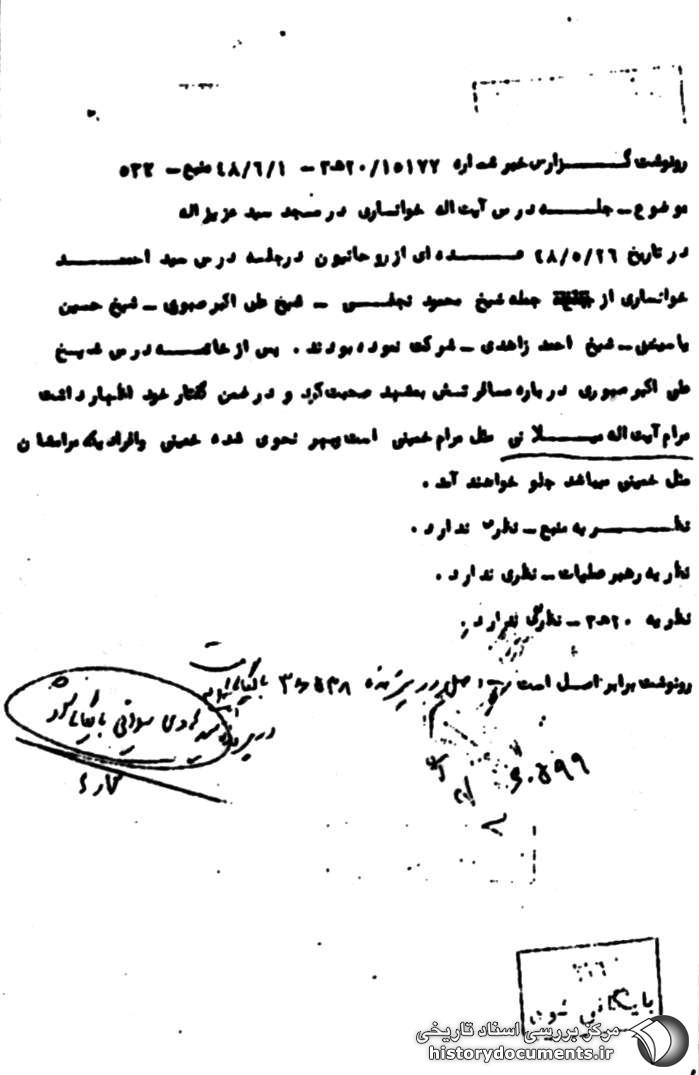 رونوشت گـــزارش خبر شماره ۲۰/۱۵۱۷۷ﻫ۳ – ۴۸/۶/۱ منبع – ۵۳۳
موضوع – جلســـه درس آیت اله خوانساری در مسجد سید عزیزاله
در تاریخ ۴۸/۵/۲۶ عـــده ای از روحانیون درجلسه درس سید احمـــد
خوانساری از جمله شیخ محمود نجفـــی – شیخ علی اکبر صبوری – شیخ حسین
یاسینی – شیخ احمد زاهدی – شرکت نموده بودند . پس از خاتمـــه درس شـیـخ
علی اکبر صبوری درباره مسافرتش بمشهد صحبت کرد و در ضمن گفتار خود اظهار داشت
مرام آیت اله میـــلانی مثل مرام خمینی است بهر نحوی شده خمینی وافرادیکه مرامشان
مثل خمینی میباشد جلو خواهند آمد .
نظـــر به منبع – نظری ندارد .
نظریه رهبر عملیات – نظری ندارد .
نظریه ۲۰ﻫ۳ – نظری ندارد .
رونوشت برابر اصل است اصل در پرونده بایگانی است
در پرونده هادی میلانی بایگانی شود
۶۰۵۹۹
بایگانی شود
مرکز بررسی اسناد تاریخی
historydocuments.ir